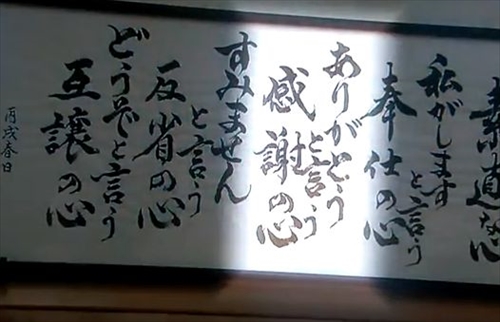 素直な心
私がします
と言う
奉仕の心
ありがとう
と言う
感謝の心
すみません
と言う
反省の心
どうぞと言う
互譲の心
丙戌春日